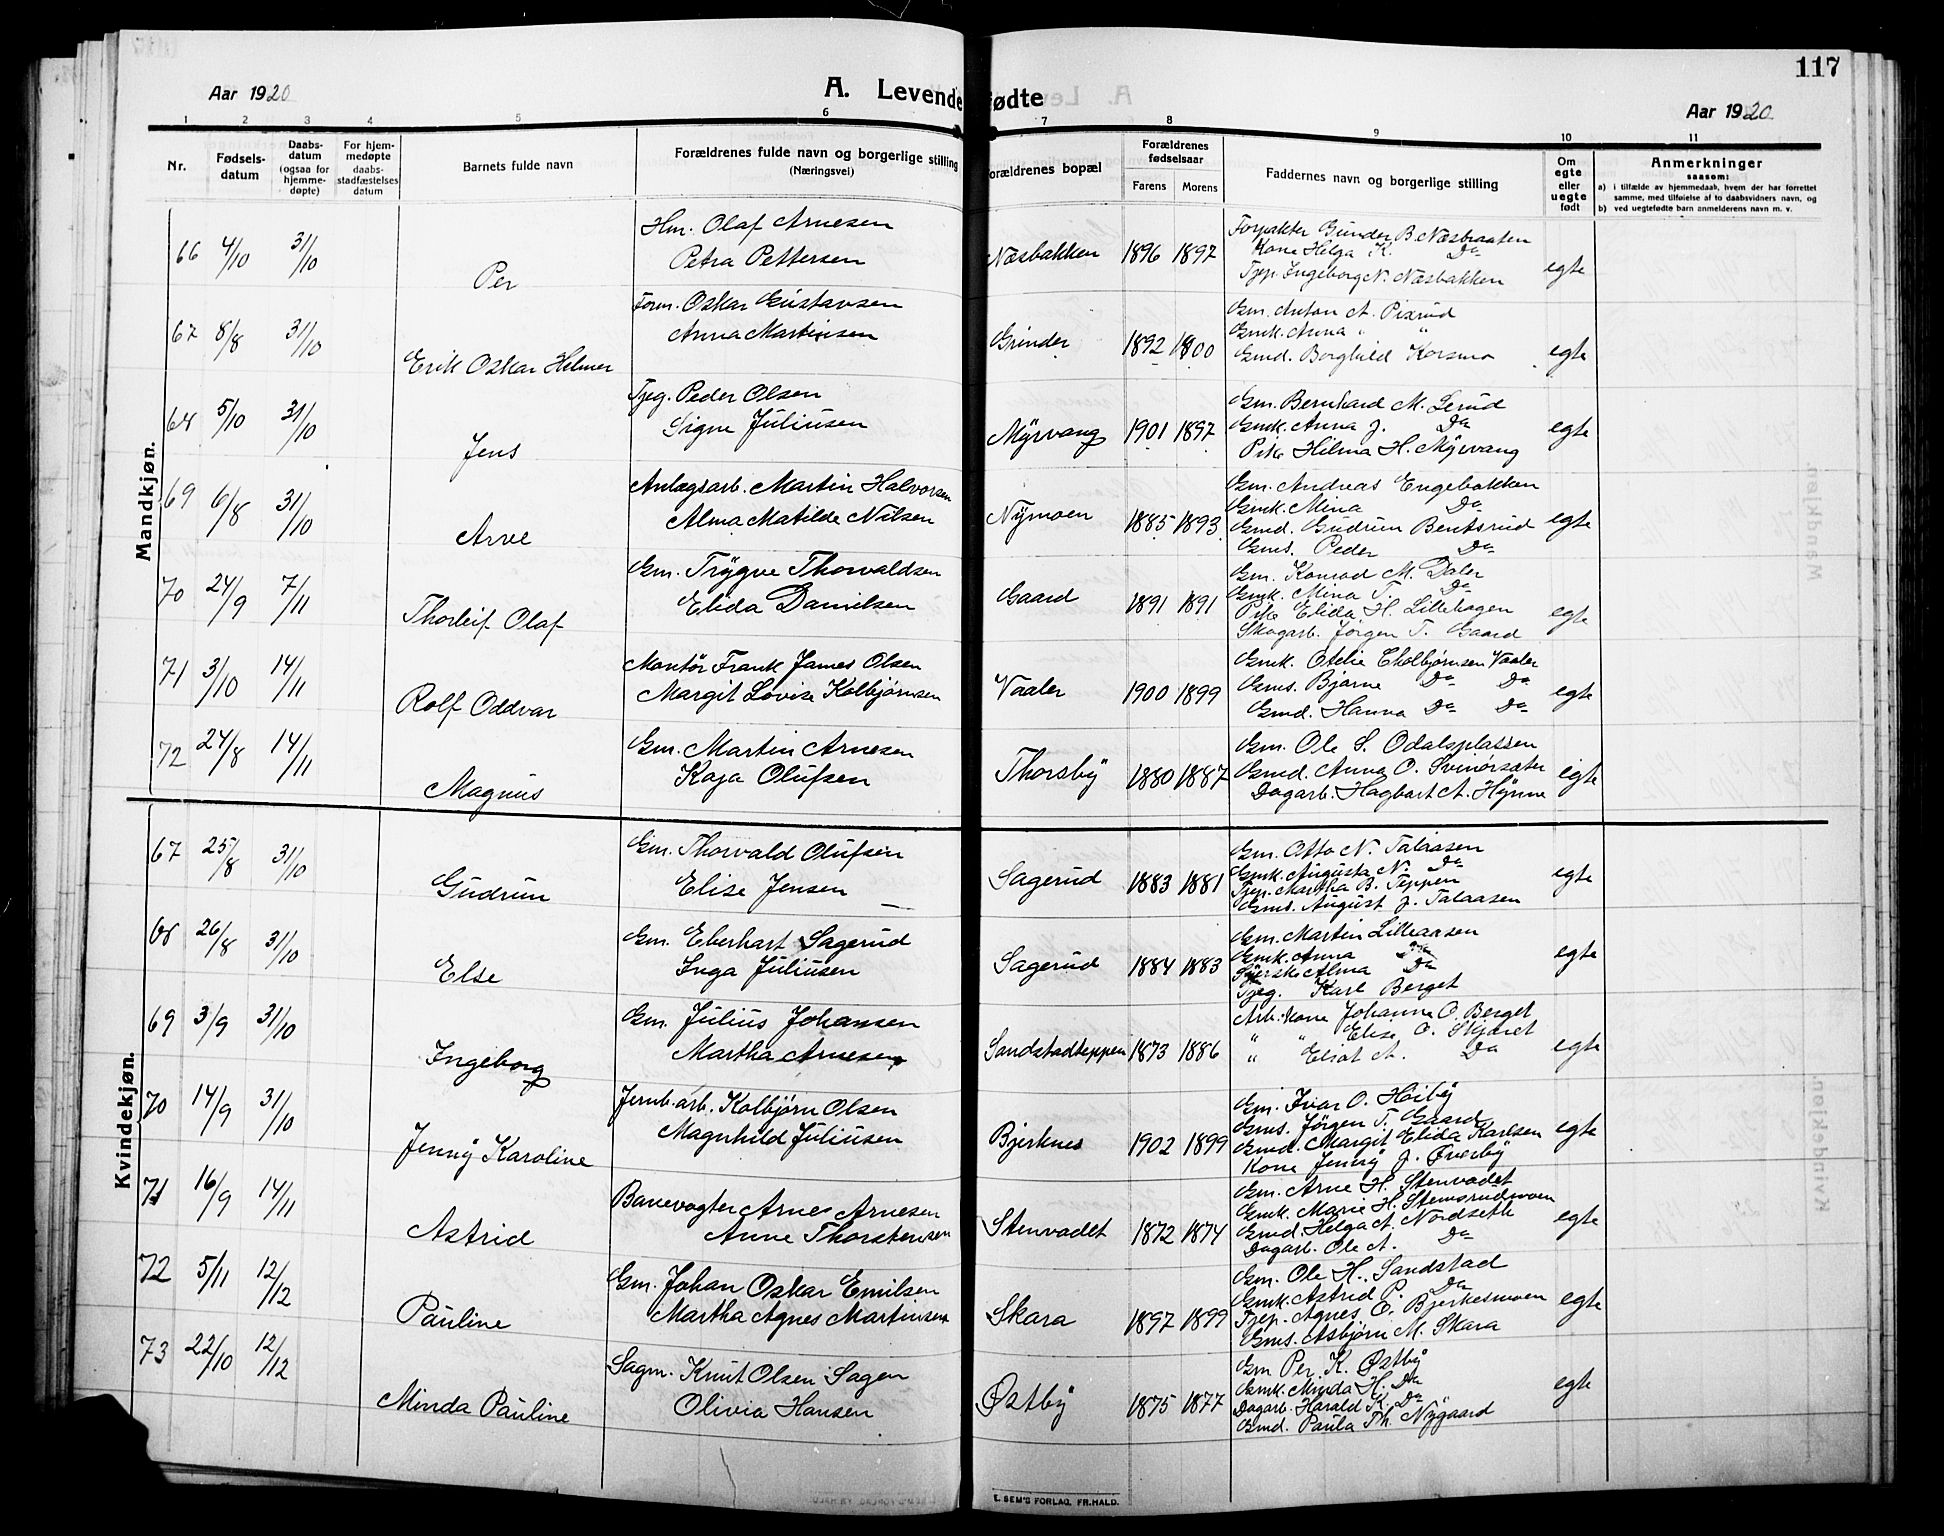 117
Aar 1920
A. Levendefødte
Aar 1920
1 2 3 4 5 6 7 8 9 10 11
Nr. Fødselsdatum Daabsdatum (ogsaa for hjemmedøpte) For hjemmedøpte daabsstadfæstelses datum Barnets fulde navn Forældrenes fulde navn og borgerlige stilling (Næringsvei) Forældrenes bopæl Forældrenes fødselsaar Farens Morens Faddernes navn og borgerlige stilling Om egte eller uegte født Anmerkninger saasom:
a) i tilfælde av hjemmedaab, hvem der har forrettet samme, med tilføielse af to daabsvidners navn, og
b) ved uegtefødte barn anmelderens navn m. v.
Mandkjøn.
66 4/10 31/10 Per Hm. Olaf Arnesen
Petra Pettersen
Næsbakken 1896 1897 Forpakter Gunder B. Næsbraaten
Kone Helga K. Do
Tjep. Ingeborg N. Næsbakken
egte
67 8/8 31/10 Erik Oskar Helmer Form. Oskar Gustavsen
Anna Martinsen
Grinder 1892 1900 Gm. Anton A. Pixrud
Gmk. Anna " "
Gmd. Borghild Korsmo
egte
68 5/10 31/10 Jens Tjeg. Peder Olsen
Signe Juliusen
Myrvang 1901 1897 Gm. Bernhard M. Lerud
Gmk. Anna J. Do
Pike Hilma H. Myrvang
egte
69 6/8 31/10 Arve Anlægsarb. Martin Halvorsen
Alma Matilde Nilsen
Nymoen 1885 1893 Gm. Andreas Engebakken
Gmk. Mina Do
Gmd. Gudrun Bentsrud
Gms. Peder Do
egte
70 24/9 7/11 Thorleif Olaf Gm. Trygve Thorvaldsen
Elida Danielsen
Gaard 1891 1891 Gm. Konrad M. Daler
Gmk. Mina T. Do
Pike Elida H. Lillehagen
Skogarb. Jørgen T. Gaard
egte
71 3/10 14/11 Rolf Oddvar Montør Frank James Olsen
Margit Lovise Kolbjørnsen
Vaaler 1900 1899 Gmk. Otelie Kolbjørnsen Vaaler
Gms. Bjarne Do Do
Gmd. Hanna Do Do
egte
72 24/8 14/11 Magnus Gm. Martin Arnesen
Kaja Olufsen
Thorsby 1880 1887 Gm. Ole S. Odalsplassen
Gmd. Anna O. Svinørsæter
Dagarb. Hagbart A. Hynne
egte
Kvindekjøn.
67 25/8 31/10 Gudrun Gm. Thorvald Olufsen
Elise Jensen
Sagerud 1883 1881 Gm. Otto N. Talaasen
Gmk. Augusta N. Do
Tjep. Martha B. Teppen
Gms. August J. Talaasen
egte
68 26/8 31/10 Else Gm. Eberhart Sagerud
Inga Juliusen
Sagerud 1884 1883 Gm. Martin Lilleaasen
Gmk. Anna Do
Alma Do
Tjeg. Karl Berget
egte
69 3/9 31/10 Ingeborg Gm. Julius Johansen
Martha Arnesen
Sandstadteppen 1873 1886 Arb. kone Johanne O. Berget
" " Elise O. Skjæret
" " Elisot A. Do
egte
70 14/9 31/10 Jenny Karoline Jernb.arb. Kolbjørn Olsen
Magnhild Juliusen
Bjerknes 1902 1899 Gm. Ivar O. Høiby
Gms. Jørgen T. Gaard
Gmd. Margit Elida Karlsen
Kone Jenny J. Øverby
egte
71 16/9 14/11 Astrid Banevogter Arne Arnesen
Anne Thorstensen
Stenvadet 1872 1874 Gm. Arne H. Stenvadet
Gmk. Marie H. Stemsrudmoen
Gmd. Helga A. Nordseth
Dagarb. Ole A. Do
egte
72 5/11 12/12 Pauline Gm. Johan Oskar Emilsen
Martha Agnes Martinsen
Skara 1897 1899 Gm. Ole H. Sandstad
Gmk. Astrid P. Do
Tjep. Agnes O. Bjerkesmoen
Gms. Asbjørn M. Skara
egte
73 22/10 12/12 Minda Pauline Sagm. Knut Olsen Sagen
Olivia Hansen
Østby 1875 1877 Gm Per K. Østby
Gmk. Minda H. Do
Dagarb. Harald K. Do
Gmd. Paula Th. Nygaard
egte
E. SEM'S FORLAG, FR.HALD.